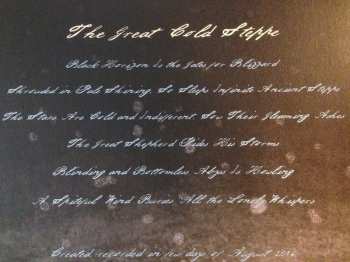 The Great Cold Steppe
Black Horizon is the Gates for Blizzard
Shrouded in Pale Shining, So Sleeps Infinite Ancient Steppe
The Stars Are Cold and Indifferent, Sow Their Gleaming Ashes
The Great Shepherd Rides His Storms
Blinding and Bottomless Abyss is Howling
A Spiteful Wind Pierces All the Lonely Whispers
Created recorded in few days of August